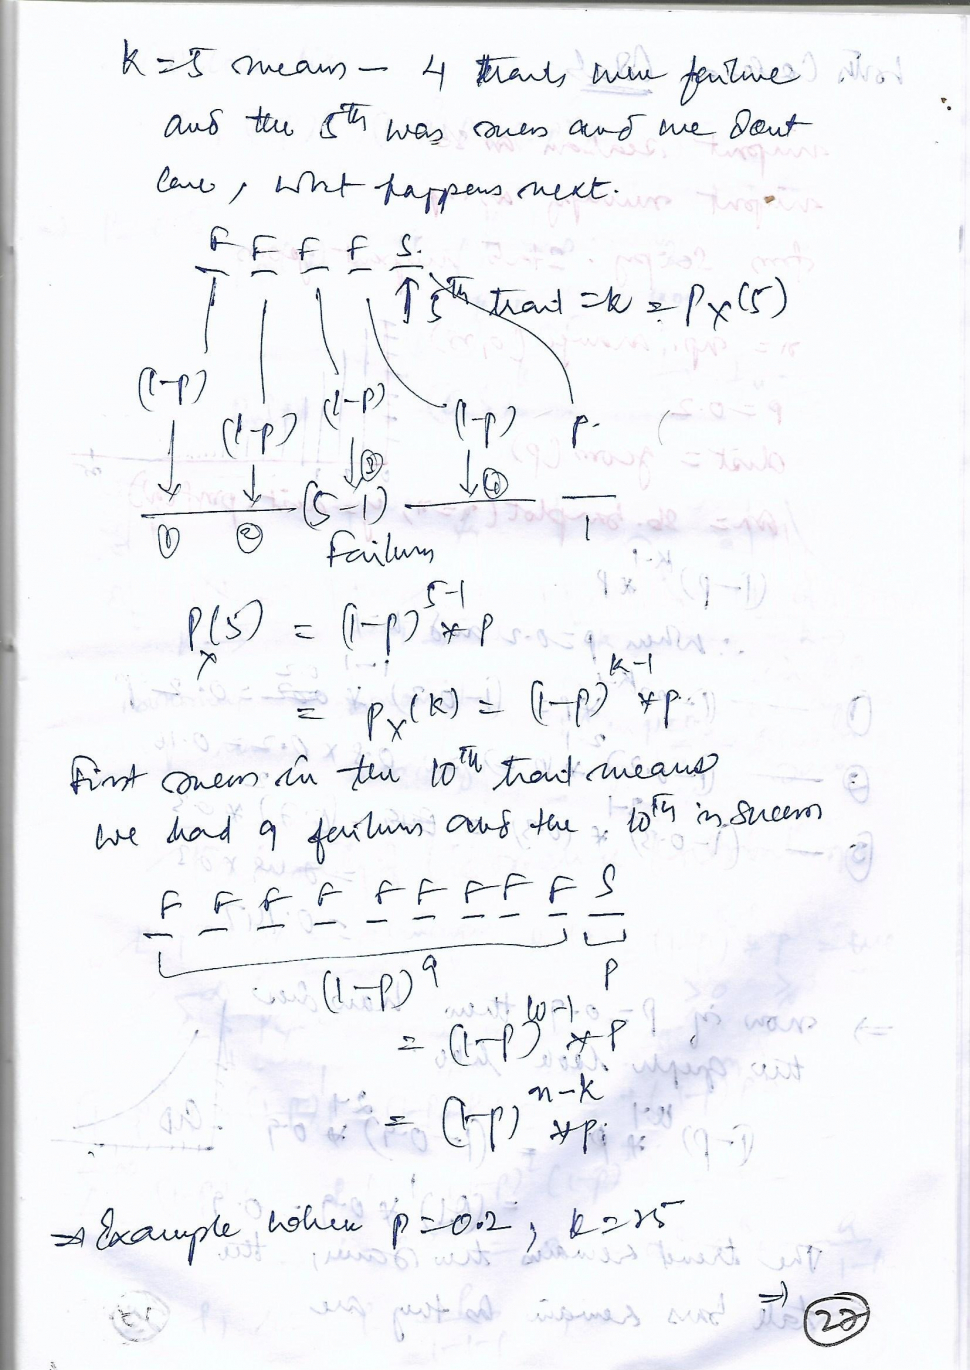 K=5 means – 4 trails were failure
and the 5th was succes and we dont
care, what happens next.
F F F F S.
5th trail = k = Px(5)
(1-p) (1-p) (1-p) (1-p) p.
③ ④
(5-1)
① ② 1
Failures
Px(5) = (1-p)^5-1 * p
= Px(k) = (1-p)^k-1 * p.
First succes in the 10th trail means
we had 9 failures and the 10th is success
F F F F F F F F F S
(1-p)^9 p
= (1-p)^10-1 * p
= (1-p)^n-k * p.
⇒ Example when p=0.2, k=25
⇒ 22